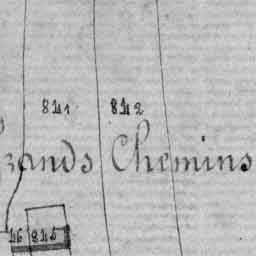 841 842
rands Chemins
845